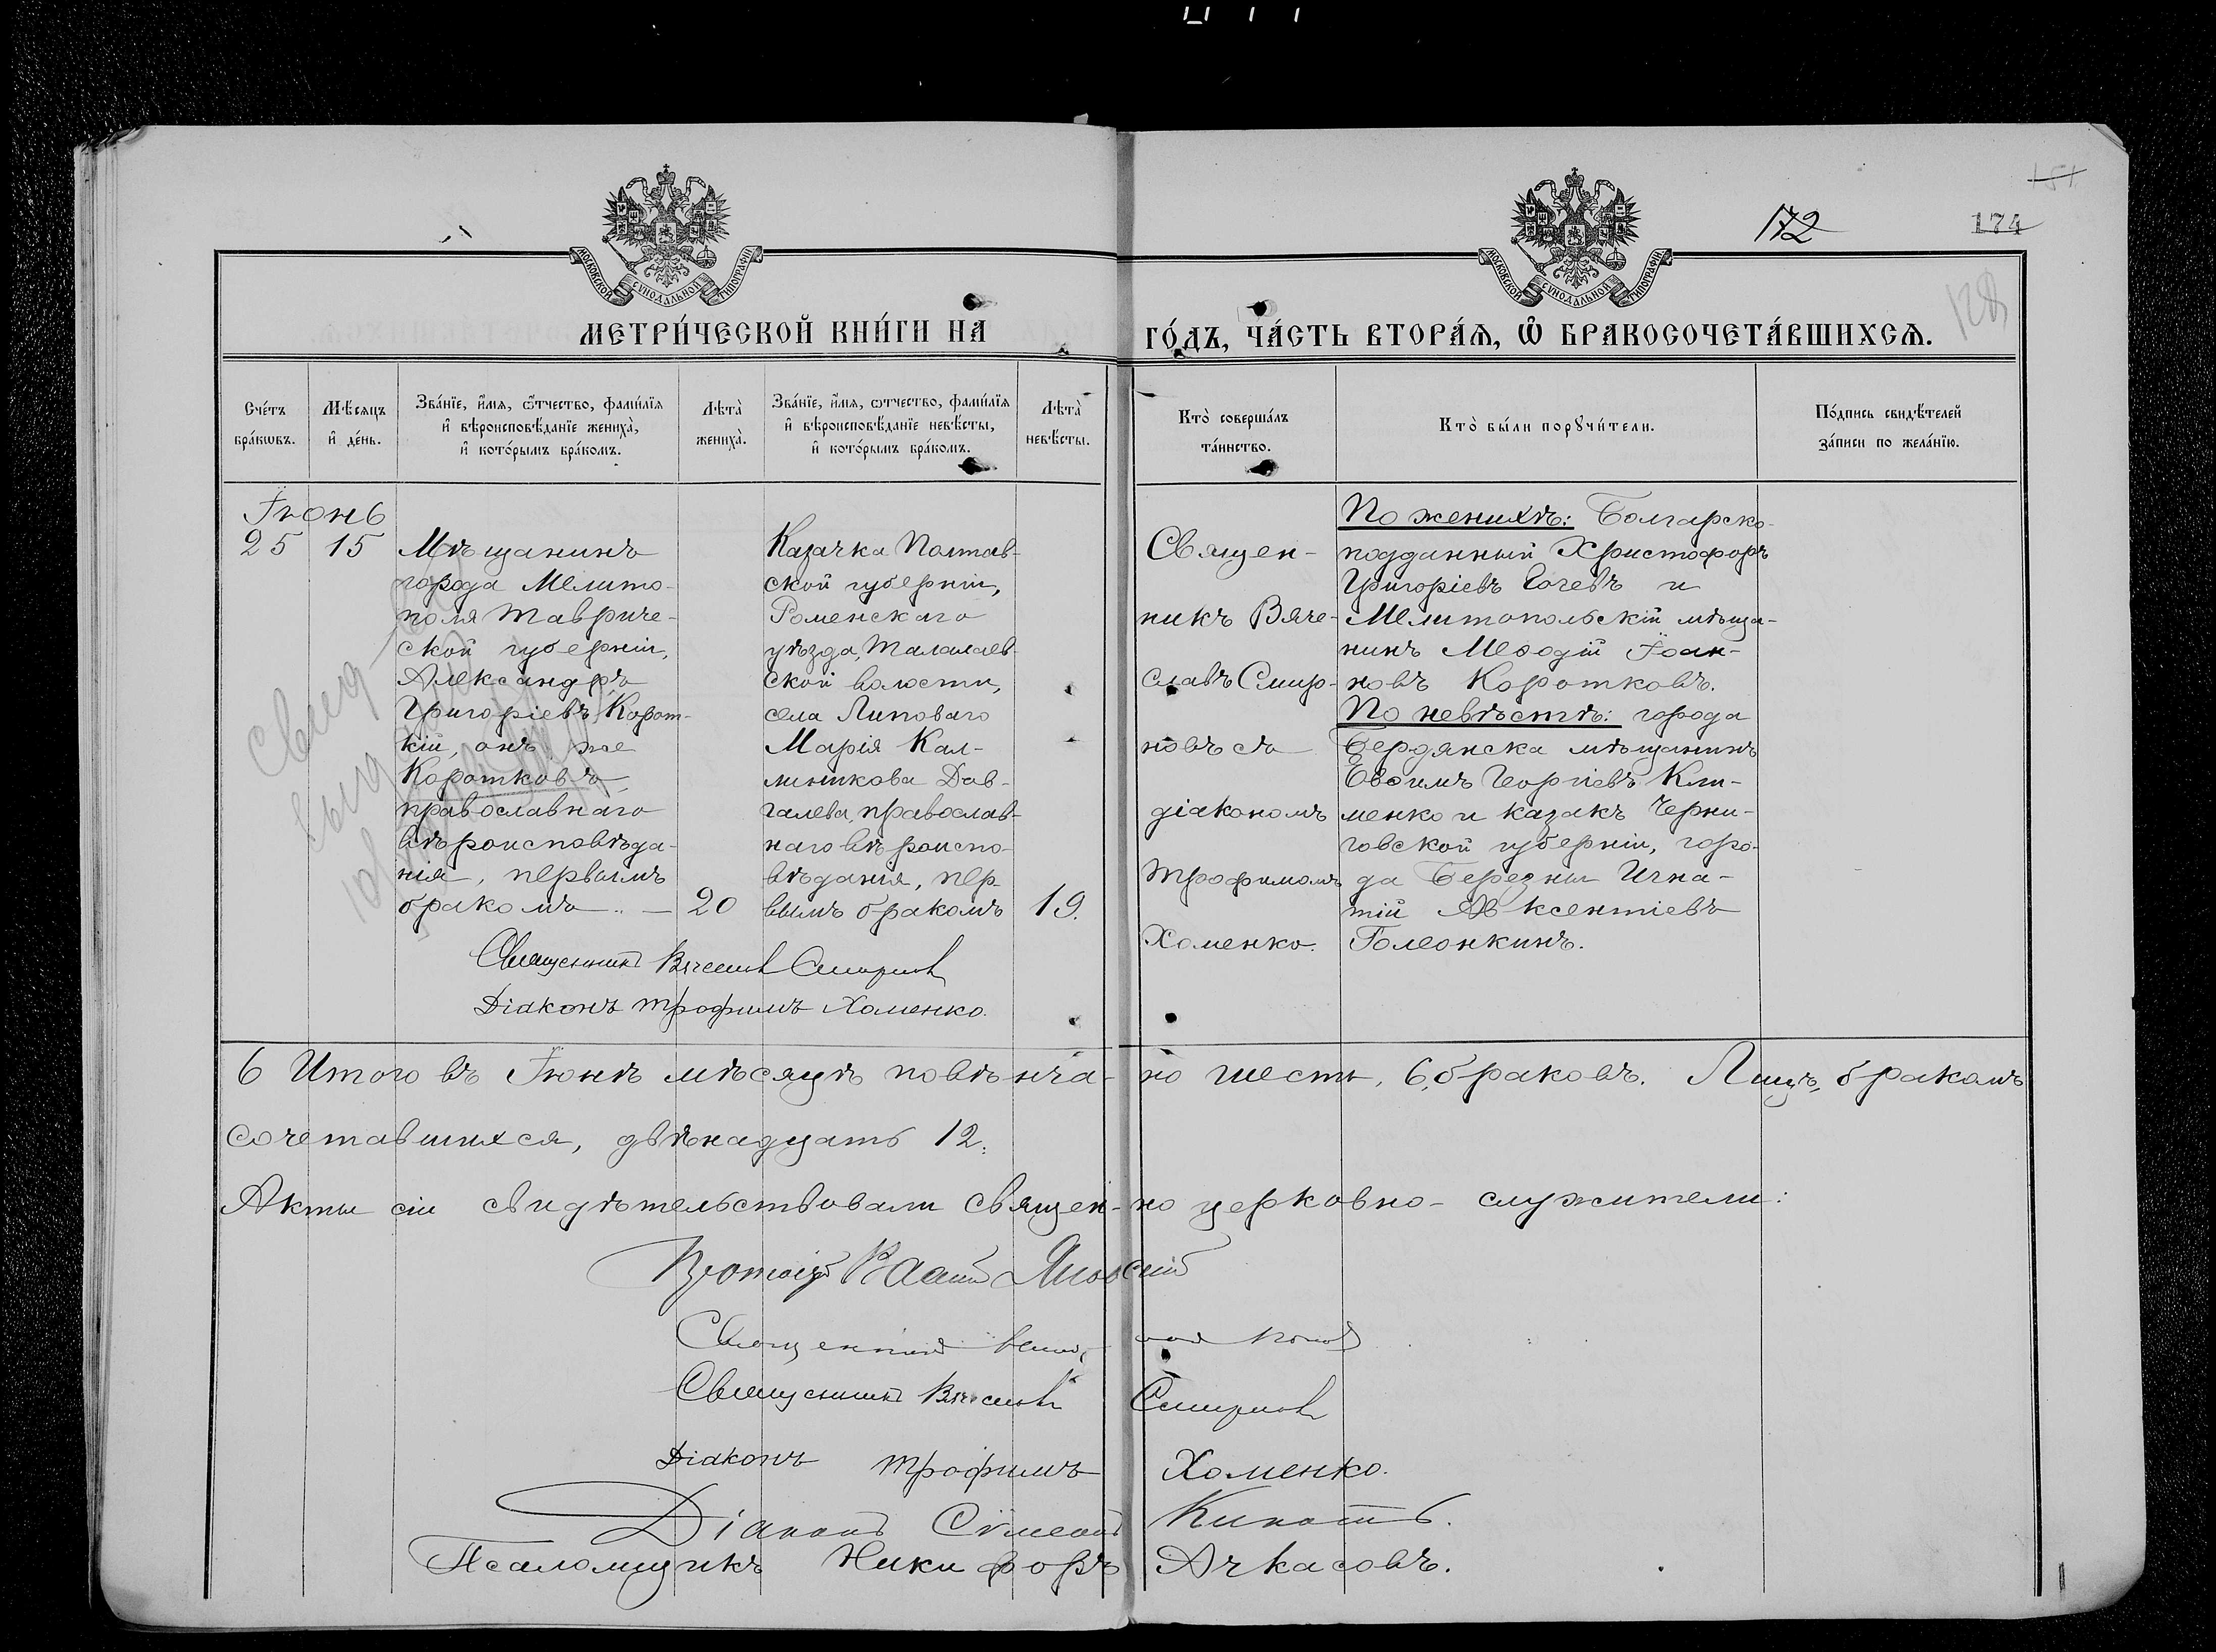 151
172
174
128
МОСКОВСКОЙ СѴНОДАЛЬНОЙ ТИПОГРАФІИ
МОСКОВСКОЙ СѴНОДАЛЬНОЙ ТИПОГРАФІИ
МЕТРИ́ЧЕСКОЙ КНИ́ГИ НА
ГО́ДЪ, ЧА́СТЬ ВТОРА́Ѧ, Ѽ БРАКОСОЧЕТА́ВШИХСѦ.
Сче́тъ
бра́кѡвъ.
Мѣ́сяцъ
и҆ де́нь.
Зва́нїе, и҆́мѧ, ѻ҆́тчество, фами́лїѧ
и҆ вѣроисповѣ́данїе жениха̀,
и҆ кото́рымъ бра́комъ.
Лѣта̀
жениха̀.
Зва́нїе, и҆́мѧ, ѻ҆́тчество, фами́лїѧ
и҆ вѣроисповѣ́данїе невѣ́сты,
и҆ кото́рымъ бра́комъ.
Лѣта̀
невѣ́сты.
Кто̀ соверша́лъ
та́инство.
Кто̀ бы́ли порꙋчи́тели.
По́дпись свидѣ́телей
за́писи по жела́нїю.
Іюнь
25 15
Мѣщанинъ
города Мелито-
поля Тавриче-
ской губерніи,
Александръ
Григоріевъ Корот-
кій, онъ же
Коротковъ,
православнаго
вѣроисповѣда-
нія, первымъ
бракомъ. — 20
Казачка Полтав-
ской губерніи,
Роменскаго
уѣзда, Талалаев-
ской волости,
села Липоваго
Марія Кал-
линикова Дов-
галева, православ-
наго вѣроиспо-
вѣданія, пер-
вымъ бракомъ 19.
Священ-
никъ Вяче-
славъ Смир-
новъ съ
діакономъ
Трофимомъ
Хоменко.
По женихѣ: Болгарско-
подданный Христофоръ
Григоріевъ Гочевъ и
Мелитопольскій мѣща-
нинъ Меѳодій Іоан-
новъ Коротковъ.
По невѣстѣ: города
Бердянска мѣщанинъ
Евѳимъ Георгіевъ Кли-
менко и казакъ Черни-
говской губерніи, горо-
да Березны Игна-
тій Авксентіевъ
Голеонкинъ.
Свид-во
выдано
Священникъ Вячеславъ Смирновъ
Діаконъ Трофимъ Хоменко.
6 Итого въ Іюнѣ мѣсяцѣ повѣнча-но шесть, 6, браковъ. Лицъ, бракомъ
сочетавшихся, двѣнадцать 12.
Акты сіи свидѣтельствовали священ-но церковно-служители:
Протоіерей
Священникъ Попов
Священникъ Вячеславъ Смирновъ
Діаконъ Трофимъ Хоменко.
Діаконъ Сѵмеонъ
Псаломщикъ Никифоръ Ачкасовъ.